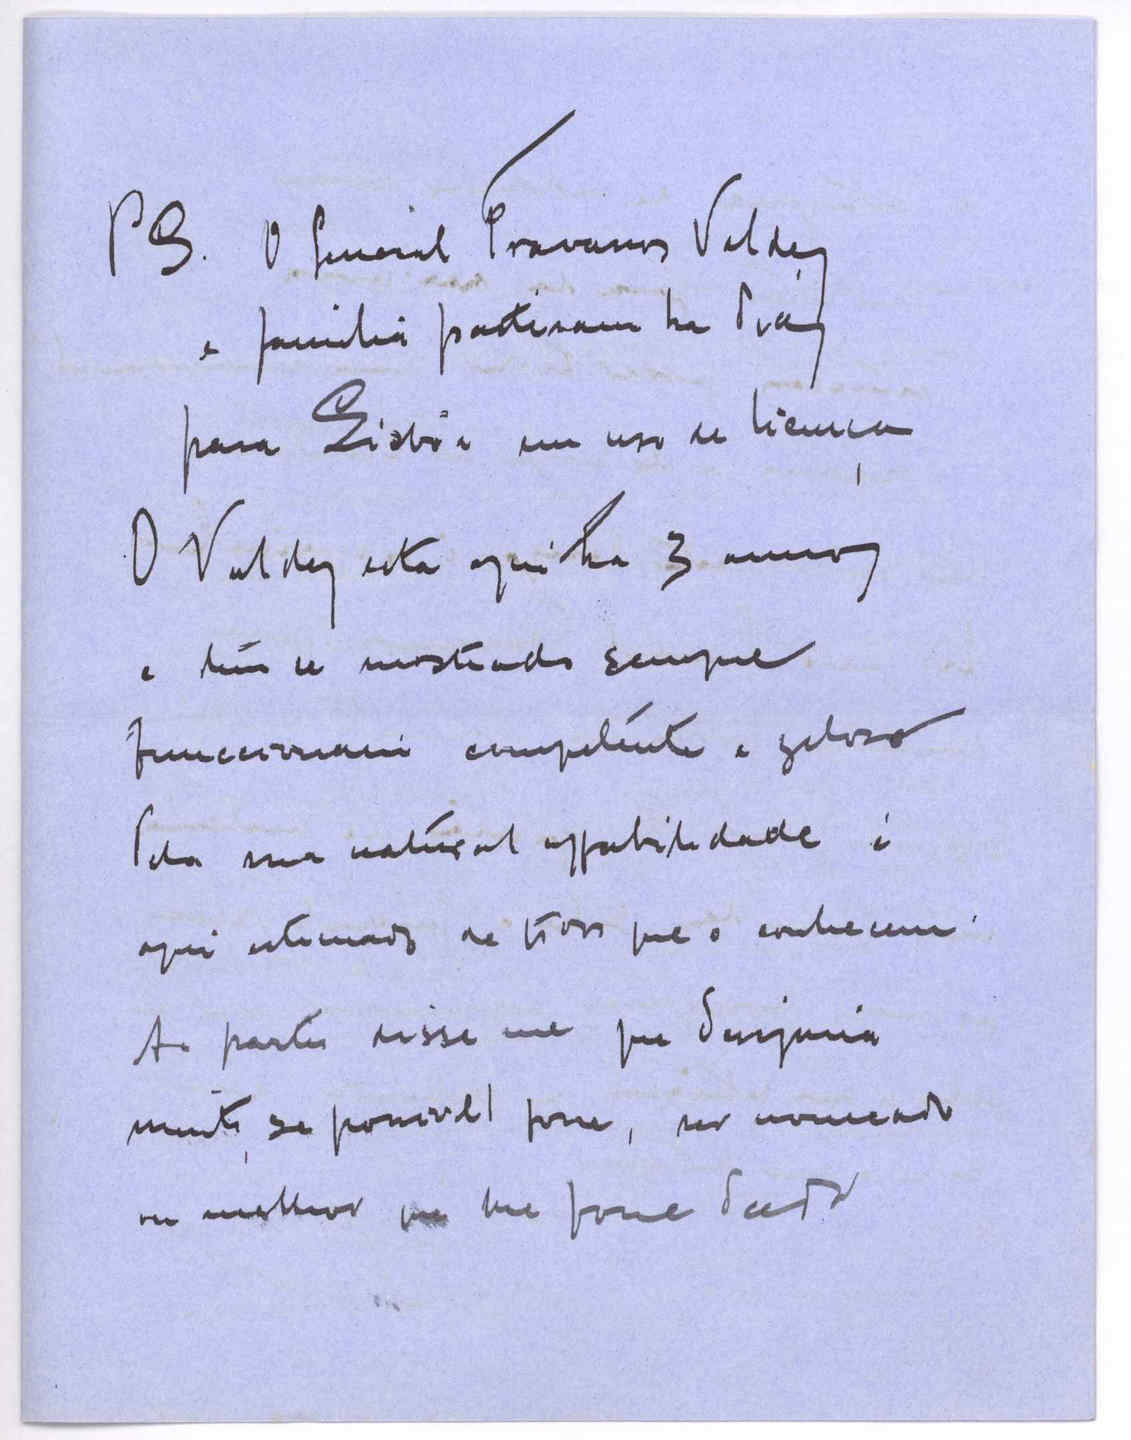 PS. O General Travassos Valdez
e familia partiram ha dias
para Lisbôa em uso de licença
O Valdez está aqui ha 3 annos
e tem se mostrado sempre
funccionario competente e zeloso
Pela sua natural affabilidade é
aqui estimado de todos que o conhecem.
Ao partir disse me que desejaria
muito, se possivel fosse, ser nomeado
ou melhor que lhe fosse dado